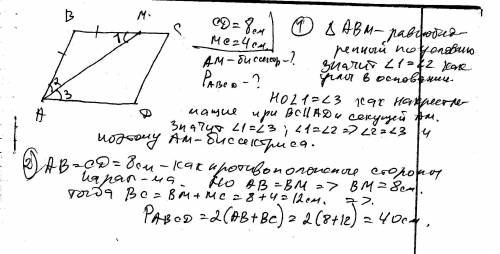 B M. C
1
2
3
A D
CD = 8 см
MC = 4 см
AM – биссектр. – ?
P ABCD – ?
① Δ ABM – равнобед
ренный по условию
значит ∠1 = ∠2 как
углы в основании.
Но ∠1 = ∠3 как накрестле
жащие при BC || AD и секущей AM.
значит ∠1 = ∠3 ; ∠1 = ∠2 => ∠2 = ∠3 и
поэтому AM – биссектриса.
② AB = CD = 8 см – как противоположные стороны
парал-ма. Но AB = BM => BM = 8 см.
тогда BC = BM + MC = 8 + 4 = 12 см. =>
P ABCD = 2(AB + BC) = 2(8 + 12) = 40 см.